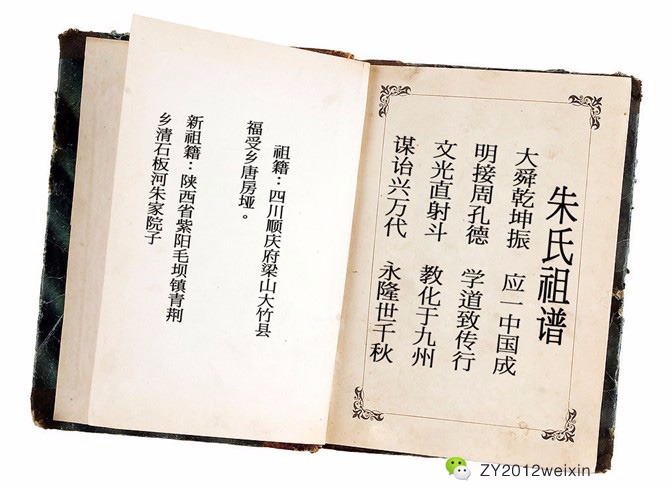 朱氏祖谱
大舜乾坤振 应一中国成
明接周孔德 学道致传行
文光直射斗 教化于九州
谋诒兴万代 永隆世千秋
祖籍：四川顺庆府梁山大竹县
福受乡唐房垭。
新祖籍：陕西省紫阳毛坝镇青荆
乡清石板河朱家院子
ZY2012weixin